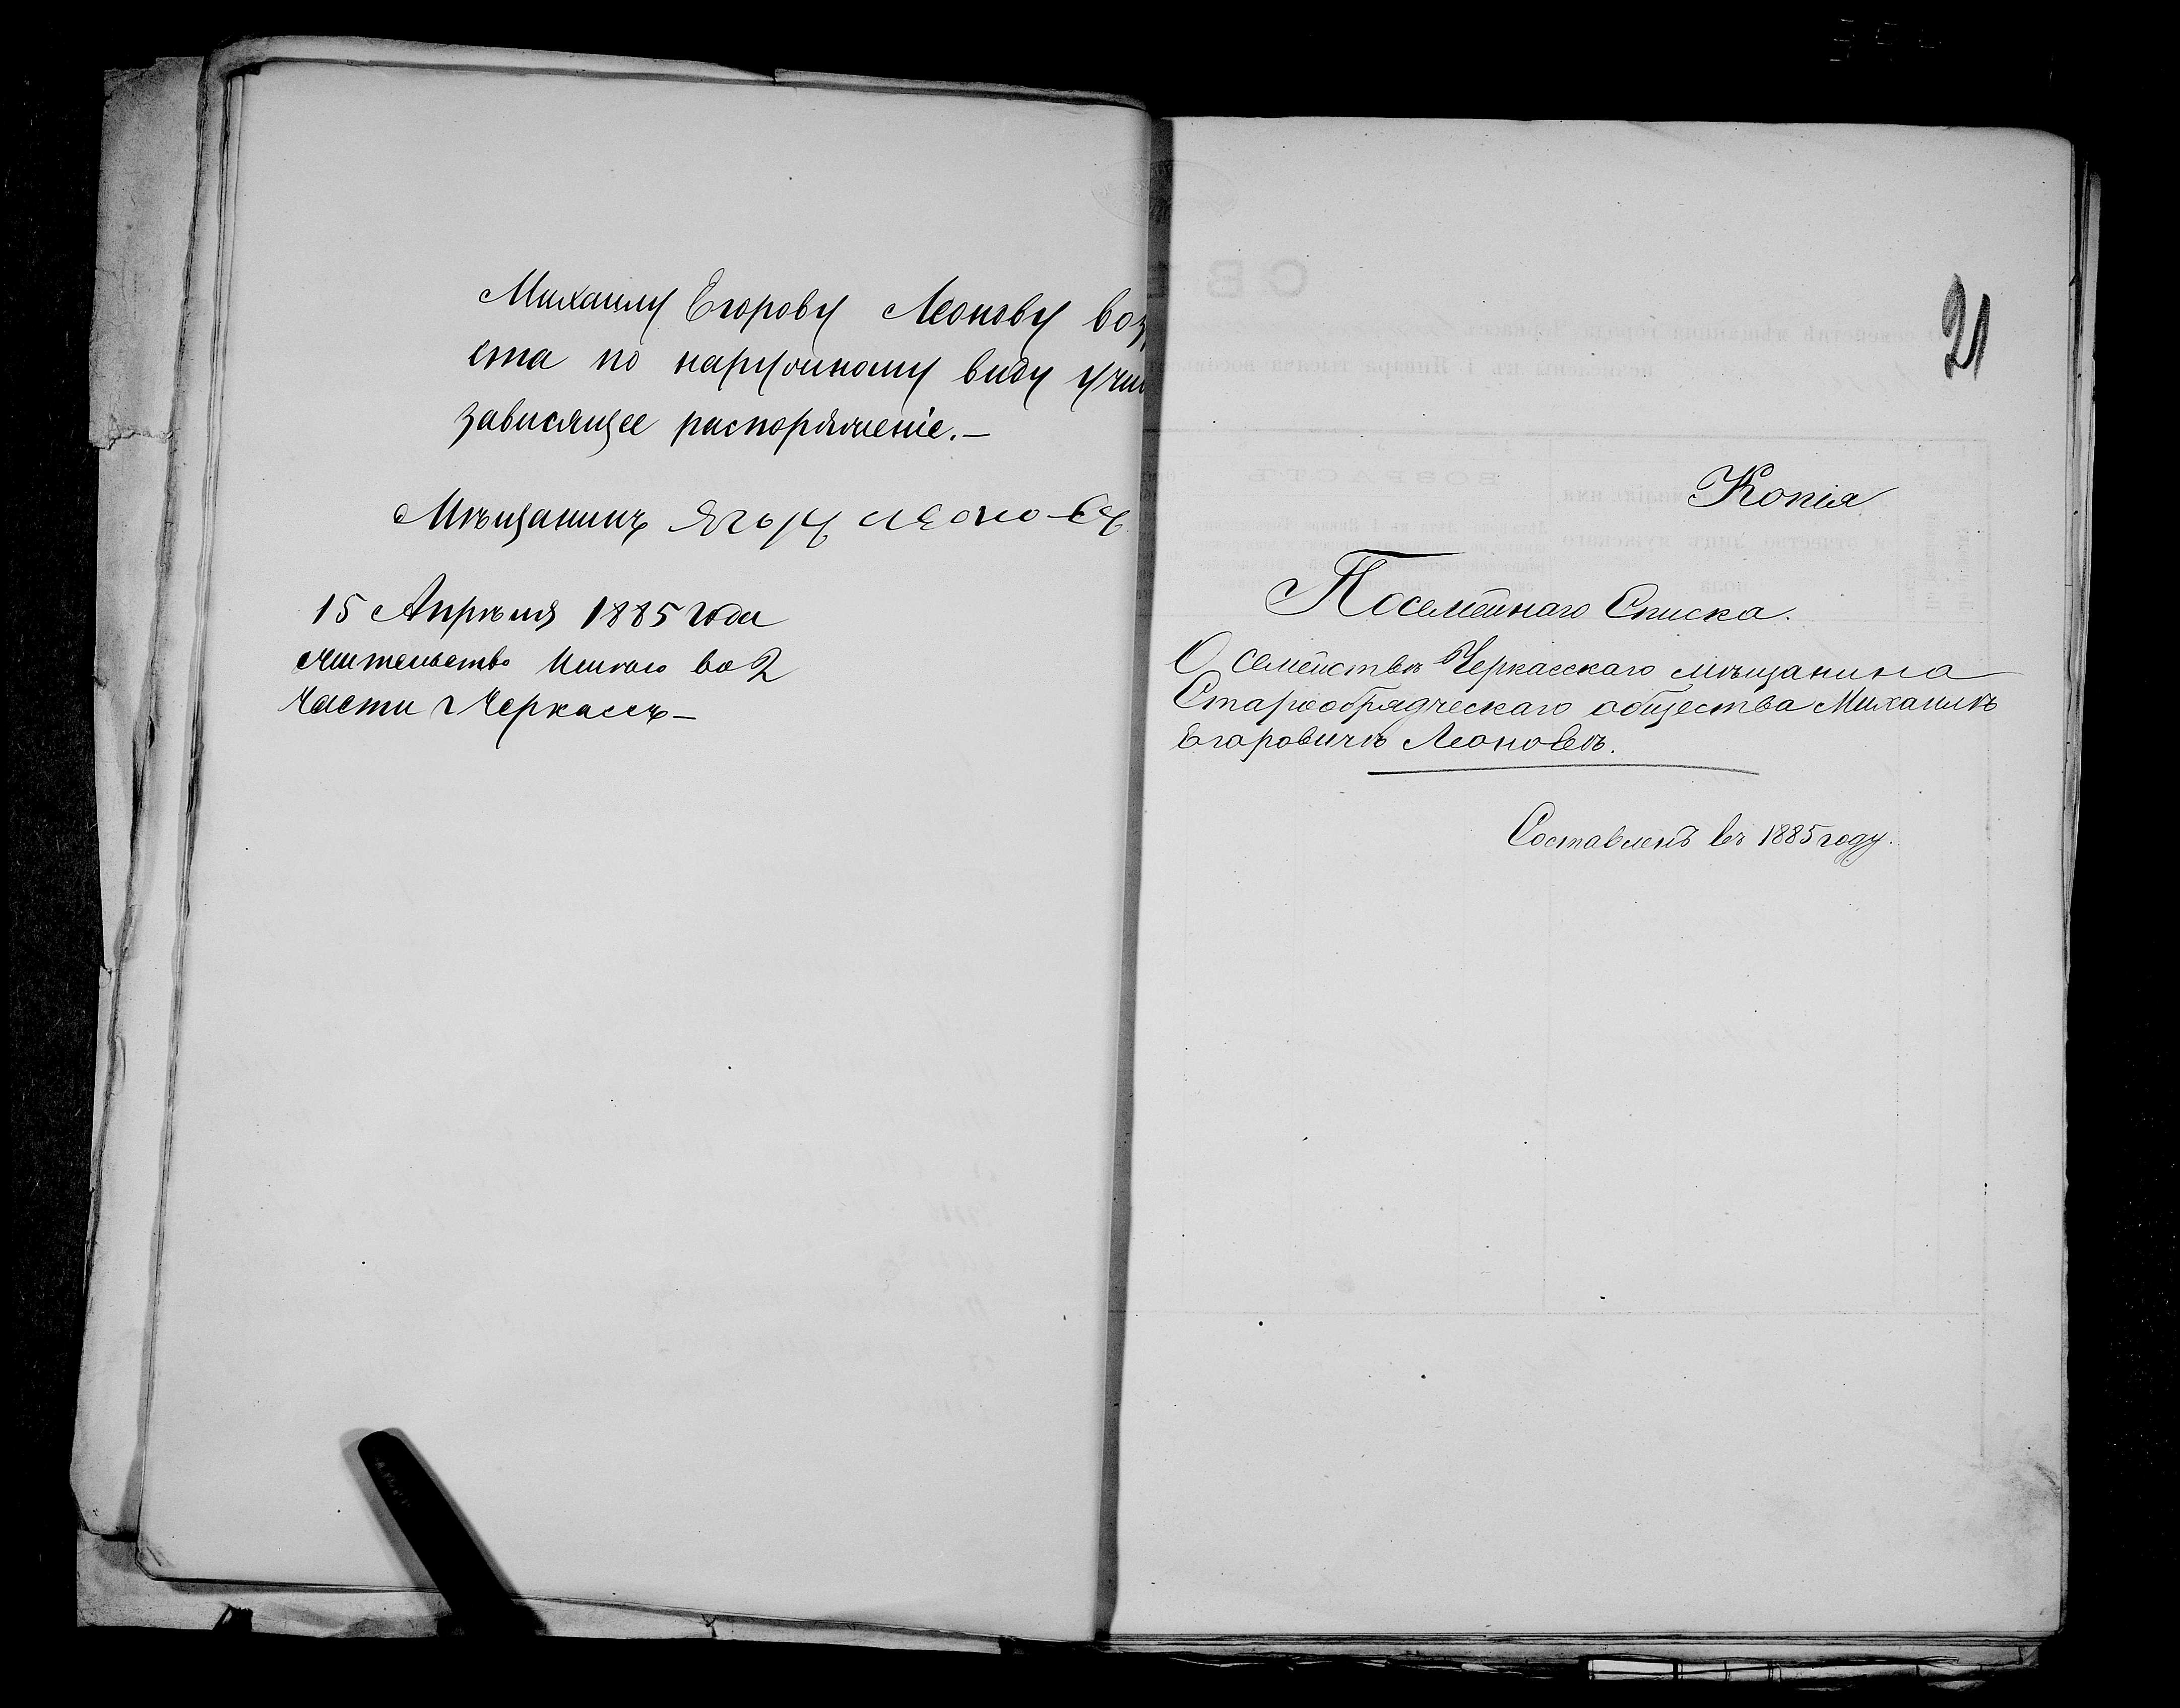 Михаилу Егорову Леонову воз
ста по наружному виду учи
зависящее распоряженіе.—
Мѣщанинъ Ягъръ леоно-въ
15 Апрѣля 1885 года
жительство имѣю во 2
части г Черкассъ—
21
Копія
Посемейнаго Списка.
О семействѣ Черкасскаго мѣщанина
Старообрядческаго общества Михаилѣ
Егоровичѣ Леоновѣ.
Составленъ въ 1885 году.